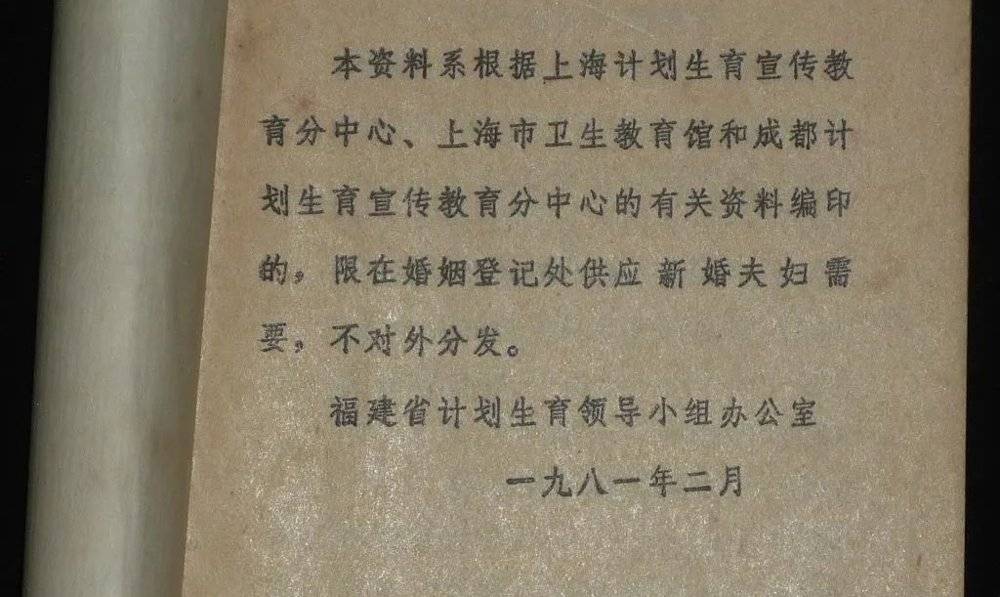 本资料系根据上海计划生育宣传教
育分中心、上海市卫生教育馆和成都计
划生育宣传教育分中心的有关资料编印
的，限在婚姻登记处供应新婚夫妇需
要，不对外分发。
福建省计划生育领导小组办公室
一九八一年二月